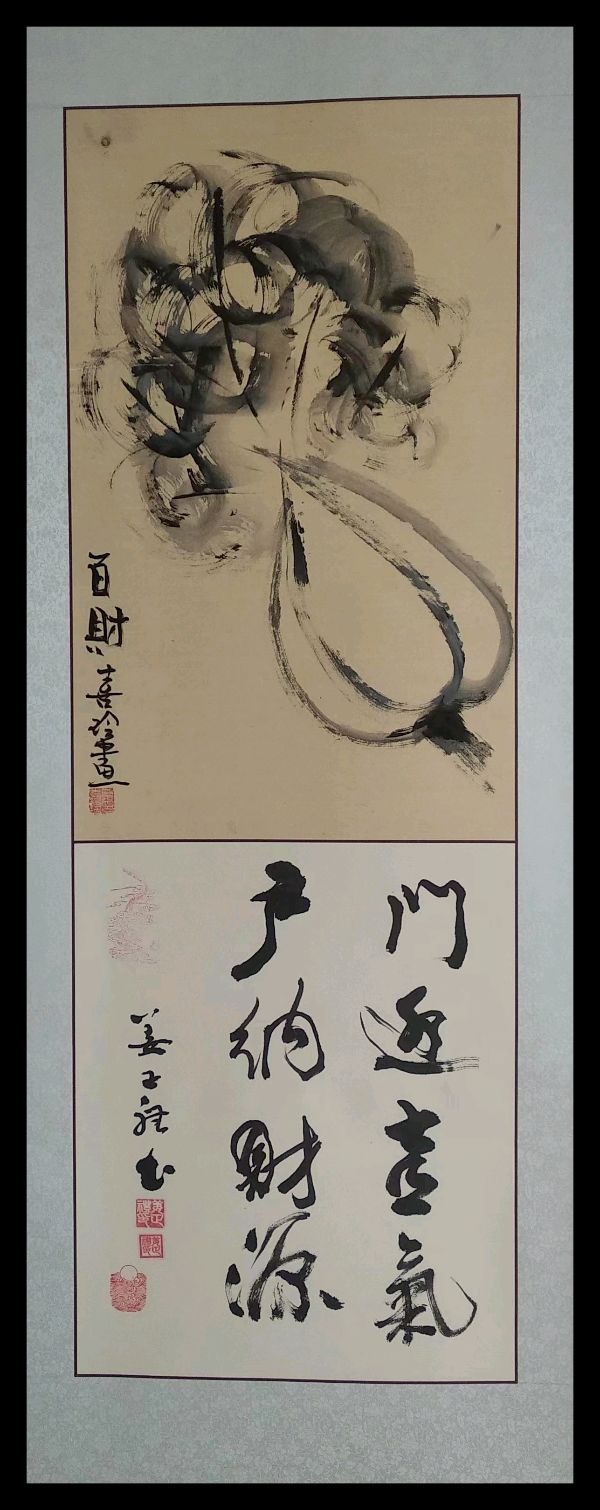 百財
喜畫
門迎喜氣
户納財源
姜书